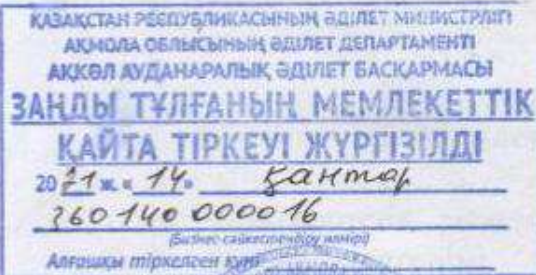 ҚАЗАҚСТАН РЕСПУБЛИКАСЫНЫҢ ӘДІЛЕТ МИНИСТРЛІГІ
АҚМОЛА ОБЛЫСЫНЫҢ ӘДІЛЕТ ДЕПАРТАМЕНТІ
АҚКӨЛ АУДАНАРАЛЫҚ ӘДІЛЕТ БАСҚАРМАСЫ
ЗАҢДЫ ТҰЛҒАНЫҢ МЕМЛЕКЕТТІК
ҚАЙТА ТІРКЕУІ ЖҮРГІЗІЛДІ
2021 ж. «14» қантар
360140000016
(Бизнес-сәйкестендіру нөмірі)
Алғашқы тіркелген күні